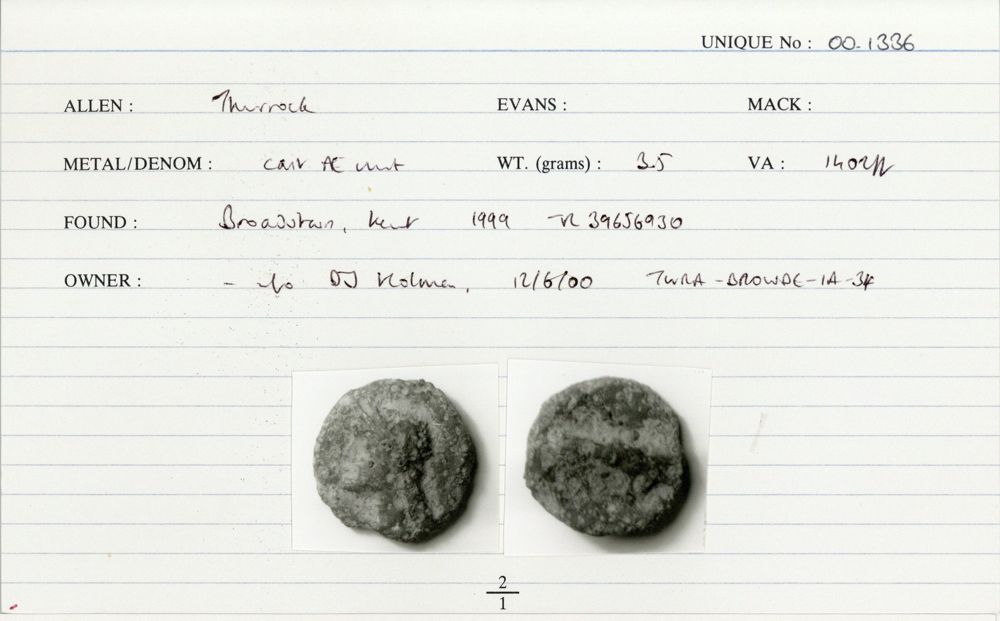 UNIQUE No : 00.1336
ALLEN : Thurrock EVANS : MACK :
METAL/DENOM : cast Æ unit WT. (grams) : 3.5 VA : 1402ff
FOUND : Broadstairs, Kent 1999 TR 39656930
OWNER : - DJ Holman, 12/6/00 TWRA-BROWDE-IA-34
2
1